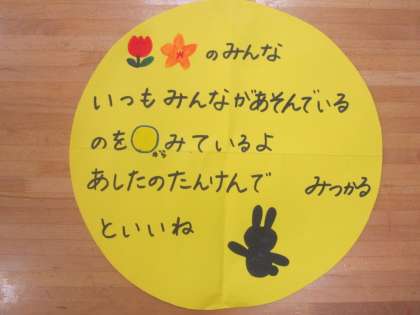 のみんな
いつもみんながあそんでいる
のをからみているよ
あしたのたんけんで みつかる
といいね